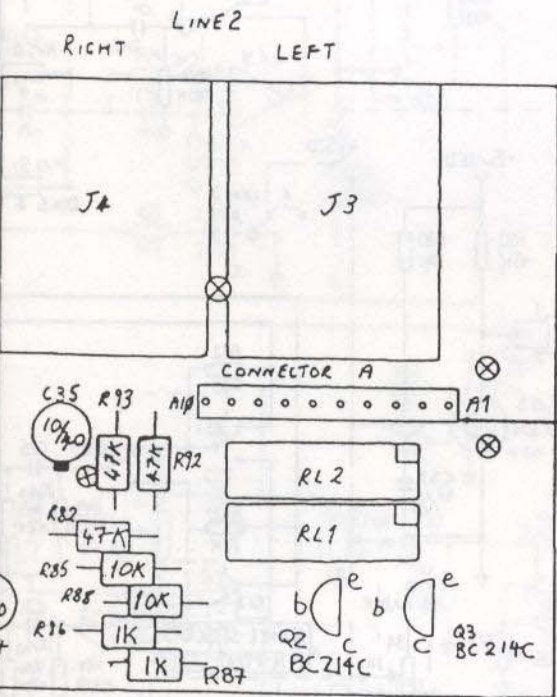 LINE2
RIGHT LEFT
J4 J3
CONNECTOR A
A10 A1
C35
10/40
R93
47K
47K
R92
RL2
R82
47K
RL1
R85
10K
R88
10K
R86
1K
1K
R87
b e
c
Q2
BC214C
b e
c
Q3
BC214C